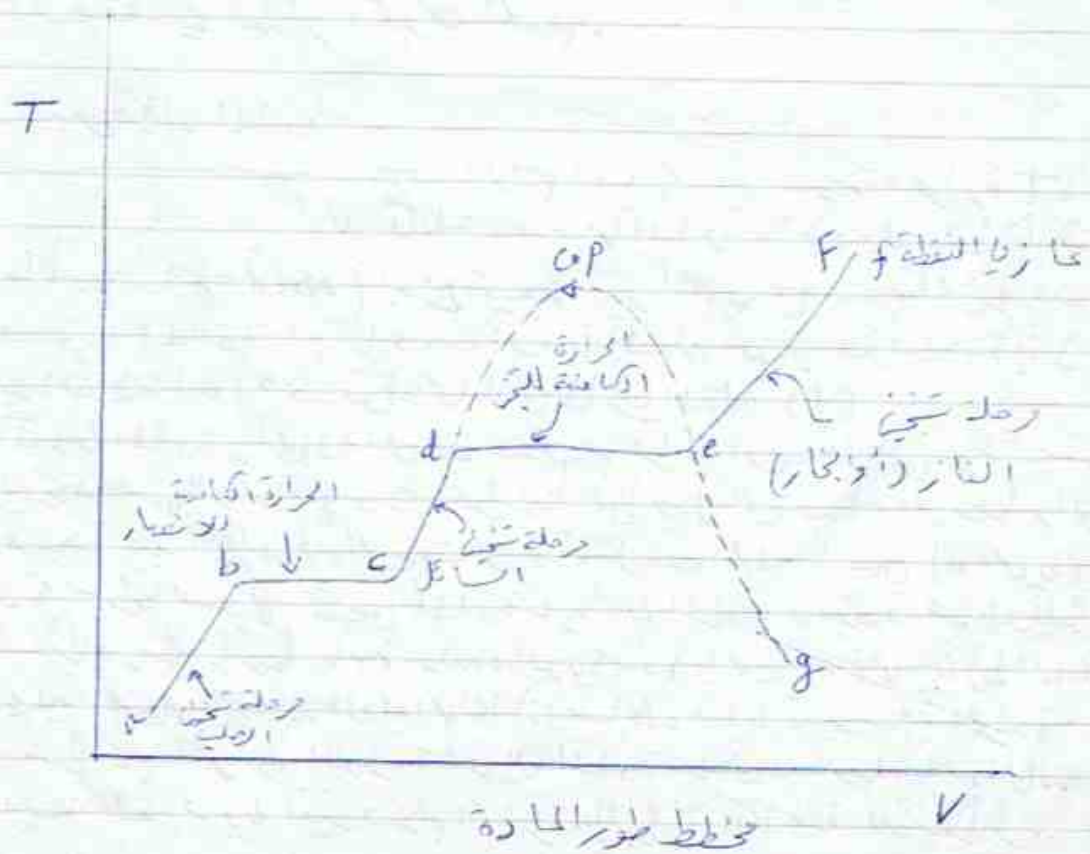 T
C.P
F
f
الحرارة
الكامنة للتبخر
d
e
مرحلة تسخين
الغاز (أو البخار)
الحرارة الكامنة
للانصهار
b
c
مرحلة تسخين
السائل
g
مرحلة تسخين
الصلب
V
مخطط طور المادة